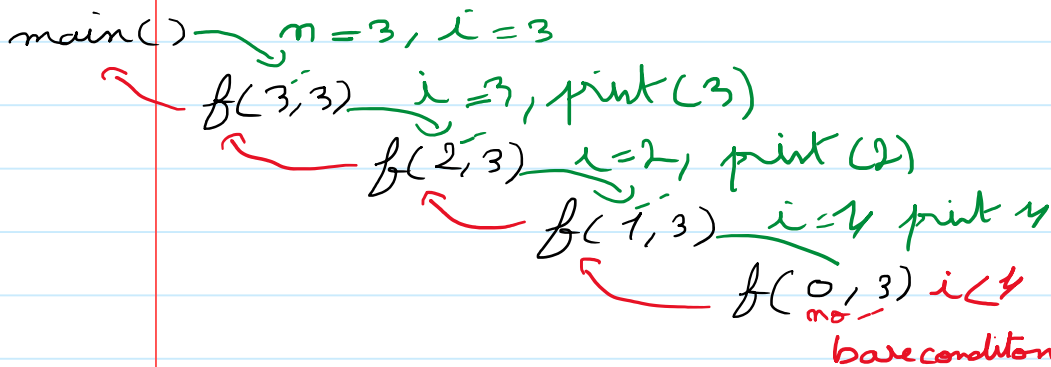 main() n = 3, i = 3
f(3,3) i = 3, print(3)
f(2,3) i=2, print (2)
f(1,3) i=1 print 1
f(0,3) i<1
no
base conditon